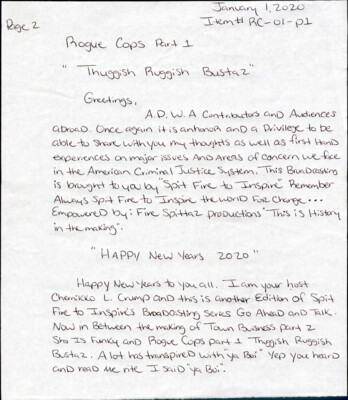 January 1, 2020
Page 2
Item# RC-01-P1
Rogue Cops Part 1
"Thuggish Ruggish Bustaz"
Greetings,
A.D.W.A Contributors and Audiences
abroad. Once again it is anhonor and a Privilege to be
able to share with you my thoughts as well as first hand
experiences on major issues and areas of concern we face
in the American Criminal Justice System. This Broadasking
is brought to you by "Spit Fire to Inspire" Remember
Always Spit Fire to Inspire the world For Change...
Empowered by: Fire Spittaz productions "This is History
in the making".
"HAPPY New Years 2020"
Happy New Years to you all. I am your host
Chemikko L. Crump and this is another Edition of Spit
Fire to Inspire's Broadasting series Go Ahead and Talk.
Now in Between the making of Town Business part 2
Sho Is Funky and Rogue Cops part 1 Thuggish Ruggish
Bustaz. A lot has transpired with "ya Boi" Yep you heard
and read me rite I said "ya Boi".